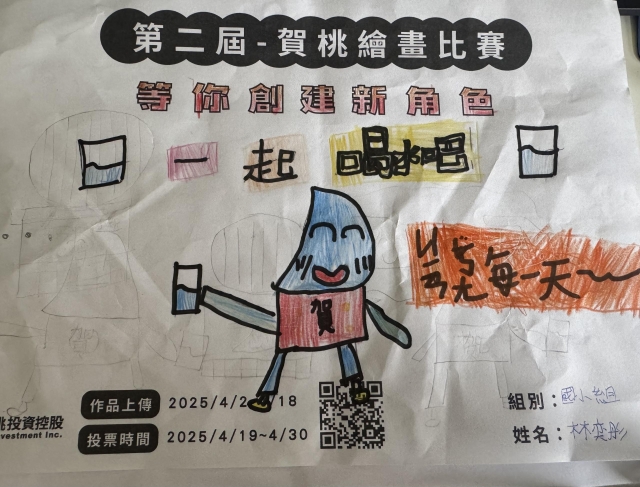 第二屆-賀桃繪畫比賽
等你創建新角色
一起喝水吧
每一天～
賀
作品上傳 2025/4/2 /18
投票時間 2025/4/19~4/30
桃投資控股
vestment Inc.
組別：國小組
姓名：林奕彤